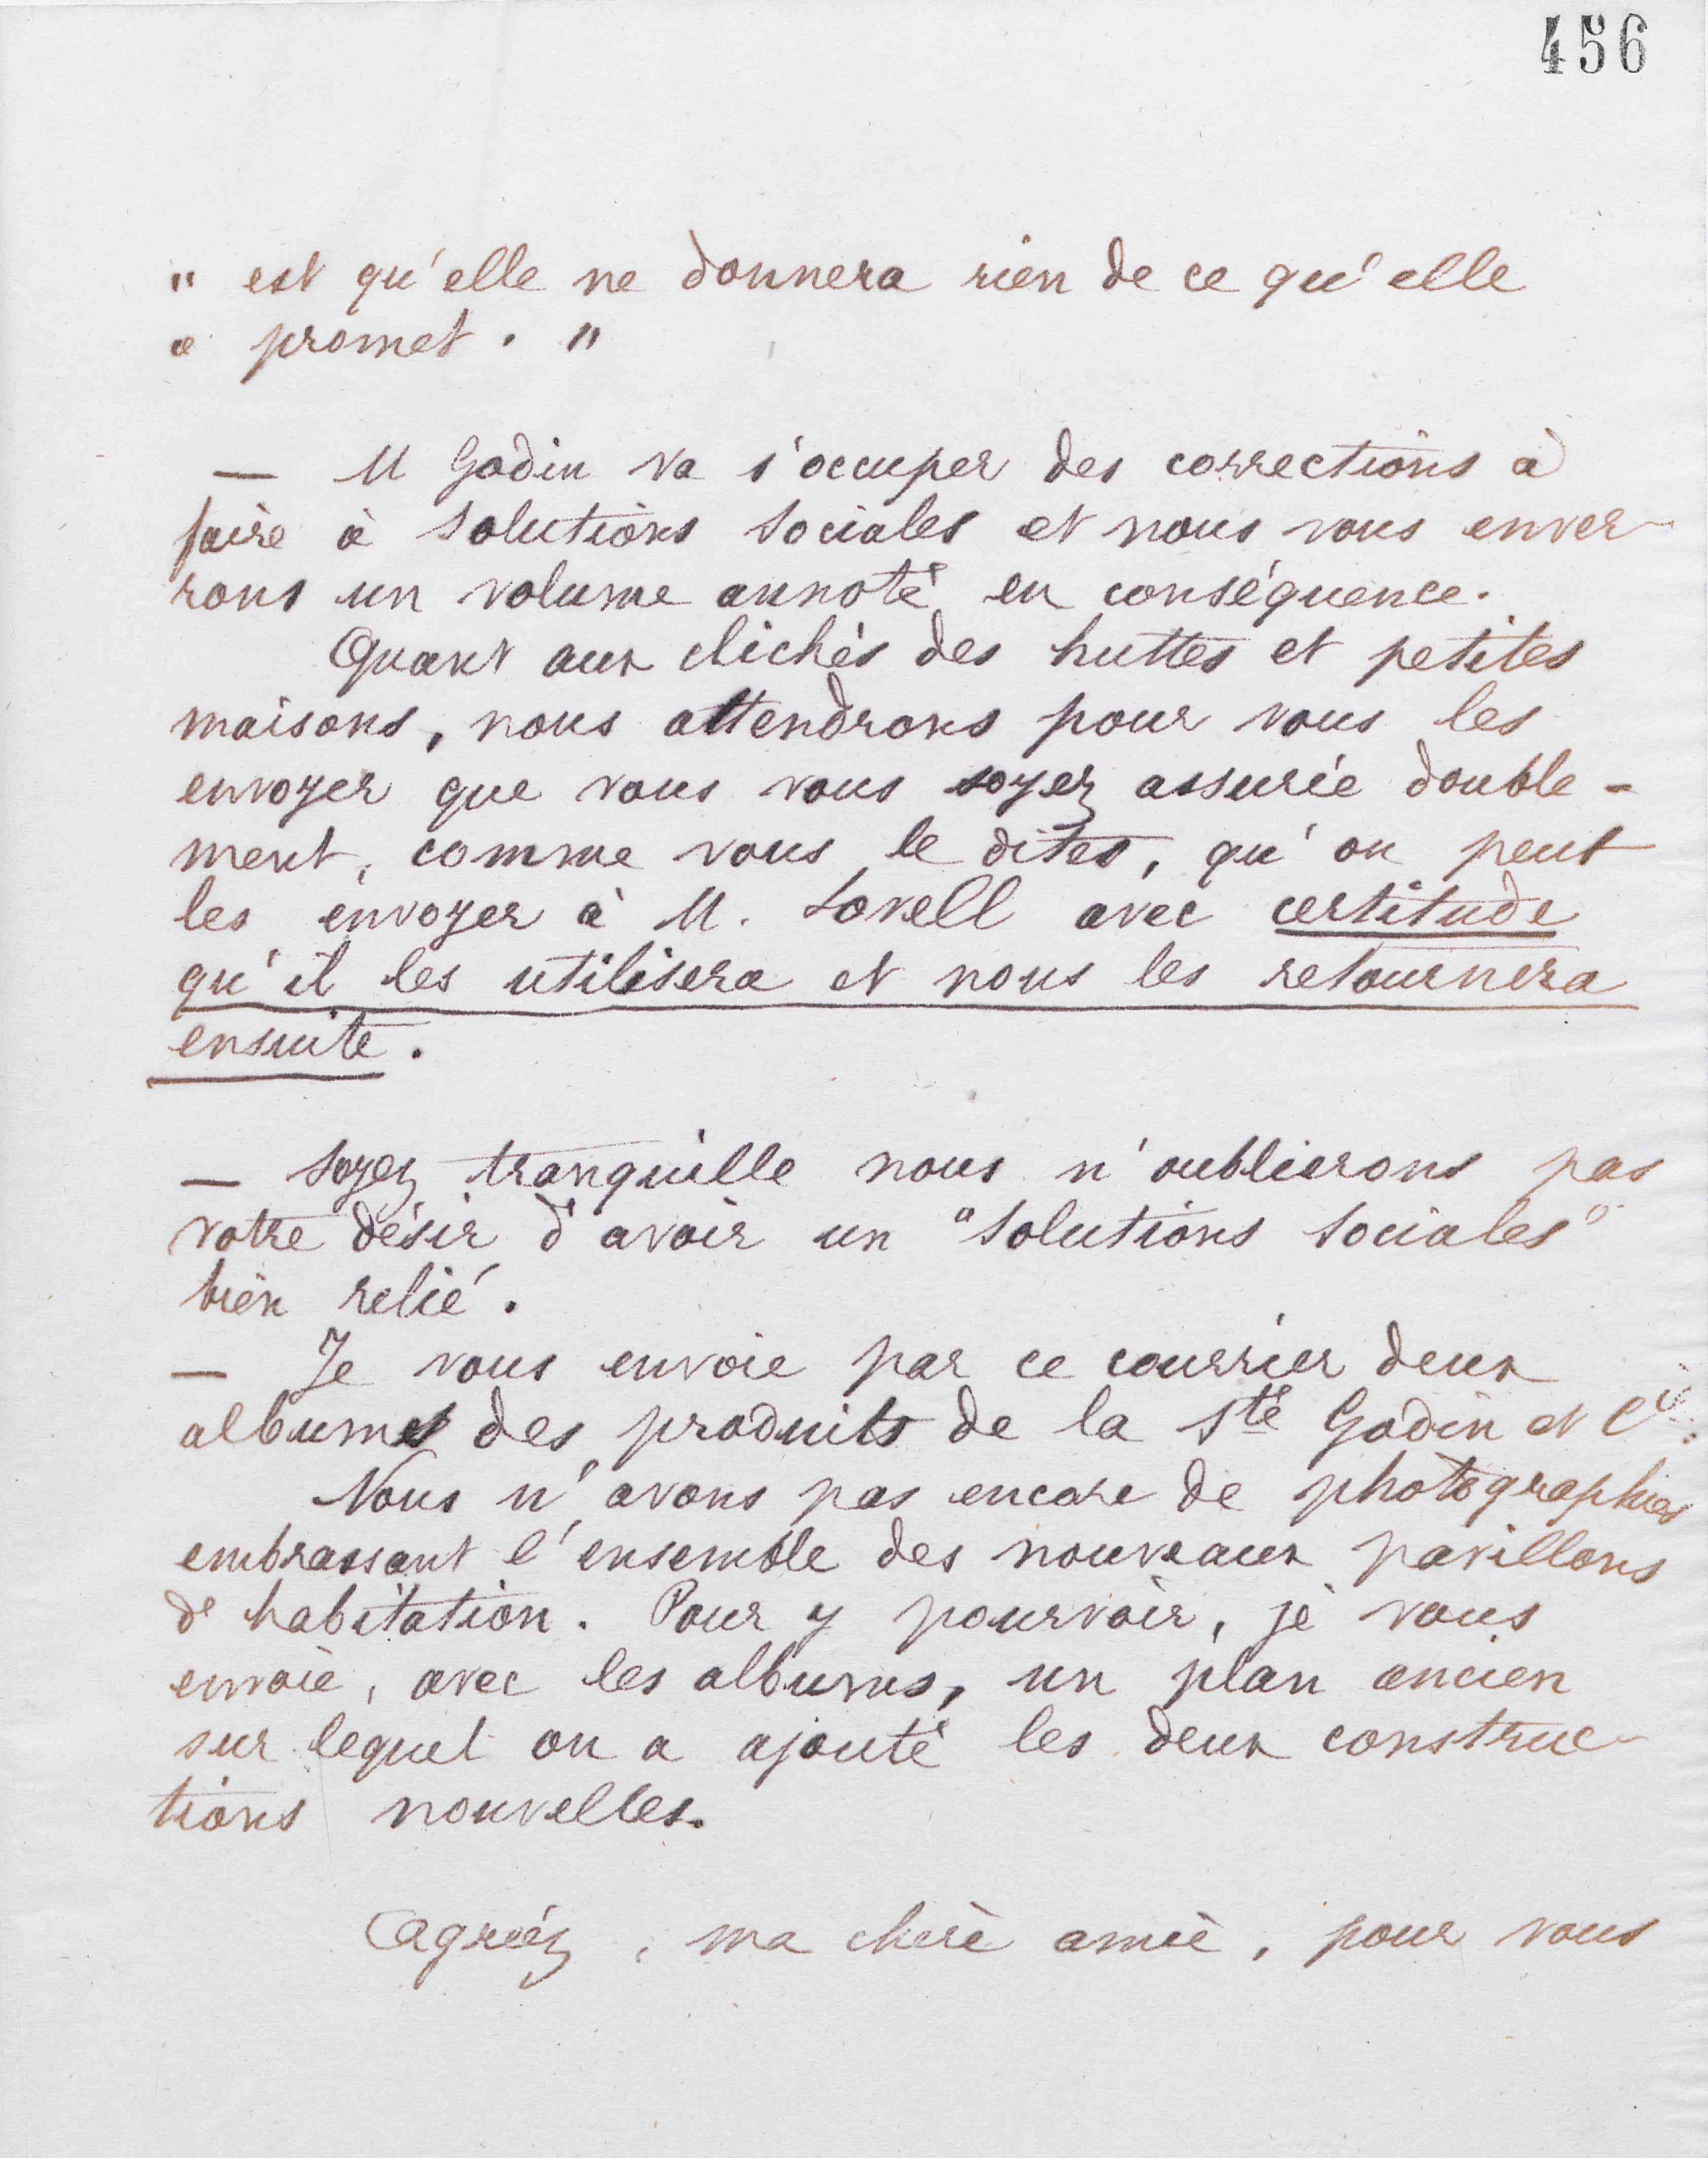 456
" est qu'elle ne donnera rien de ce qu'elle
" promet. "
— M Godin va s'occuper des corrections à
faire à Solutions Sociales et nous vous enver-
rons un volume annoté en conséquence.
Quant aux clichés des huttes et petites
maisons, nous attendrons pour vous les
envoyer que vous vous soyez assurée double-
ment, comme vous le dites, qu'on peut
les envoyer à M. Lovell avec certitude
qu'il les utilisera et nous les retournera
ensuite.
— Soyez tranquille nous n'oublierons pas
votre désir d'avoir un "Solutions Sociales"
bien relié.
— Je vous envoie par ce courrier deux
albums des produits de la Sté Godin et Cie
Nous n'avons pas encore de photographies
embrassant l'ensemble des nouveaux pavillons
d'habitation. Pour y pourvoir, je vous
envoie, avec les albums, un plan ancien
sur lequel on a ajouté les deux construc-
tions nouvelles.
Agréez, ma chère amie, pour vous